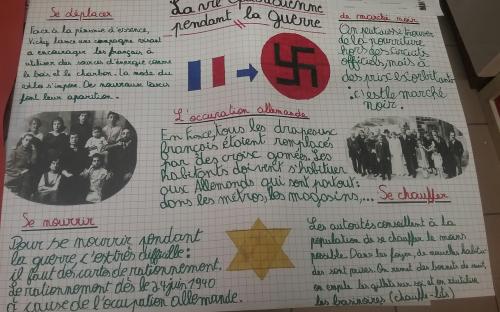 La vie quotidienne
pendant la guerre
Se déplacer
Face à la pénurie d'essence,
Vichy lance une campagne visant
à encourager les français à
utiliser des sources d'énergie comme
le bois et le charbon. La mode du
vélo s'impose. De nouveaux taxis
font leur apparition.
L'occupation allemande
En France, tous les drapeaux
français étaient remplacés
par des croix gamées. Les
habitants doivent s'habituer
aux Allemands qui sont partout:
dans les métros, les magasins,...
Le marché noir
On peut aussi trouver
de la nourriture
hors des circuits
officiels mais à
des prix exorbitants
: c'est le marché
noir.
Se nourrir
Pour se nourrir pendant
la guerre c'est très difficile:
il faut des cartes de rationnement.
Le rationnement dès le 24 juin 1940
à cause de l'occupation allemande.
Se chauffer
Les autorités conseillent à la
population de se chauffer le moins
possible. Dans les foyers, de nouvelles habitu-
des sont prises. On remet des bonnets de nuit,
on empile les gilets sur soi et on réutilise
les bassinoires (chauffe-lits)